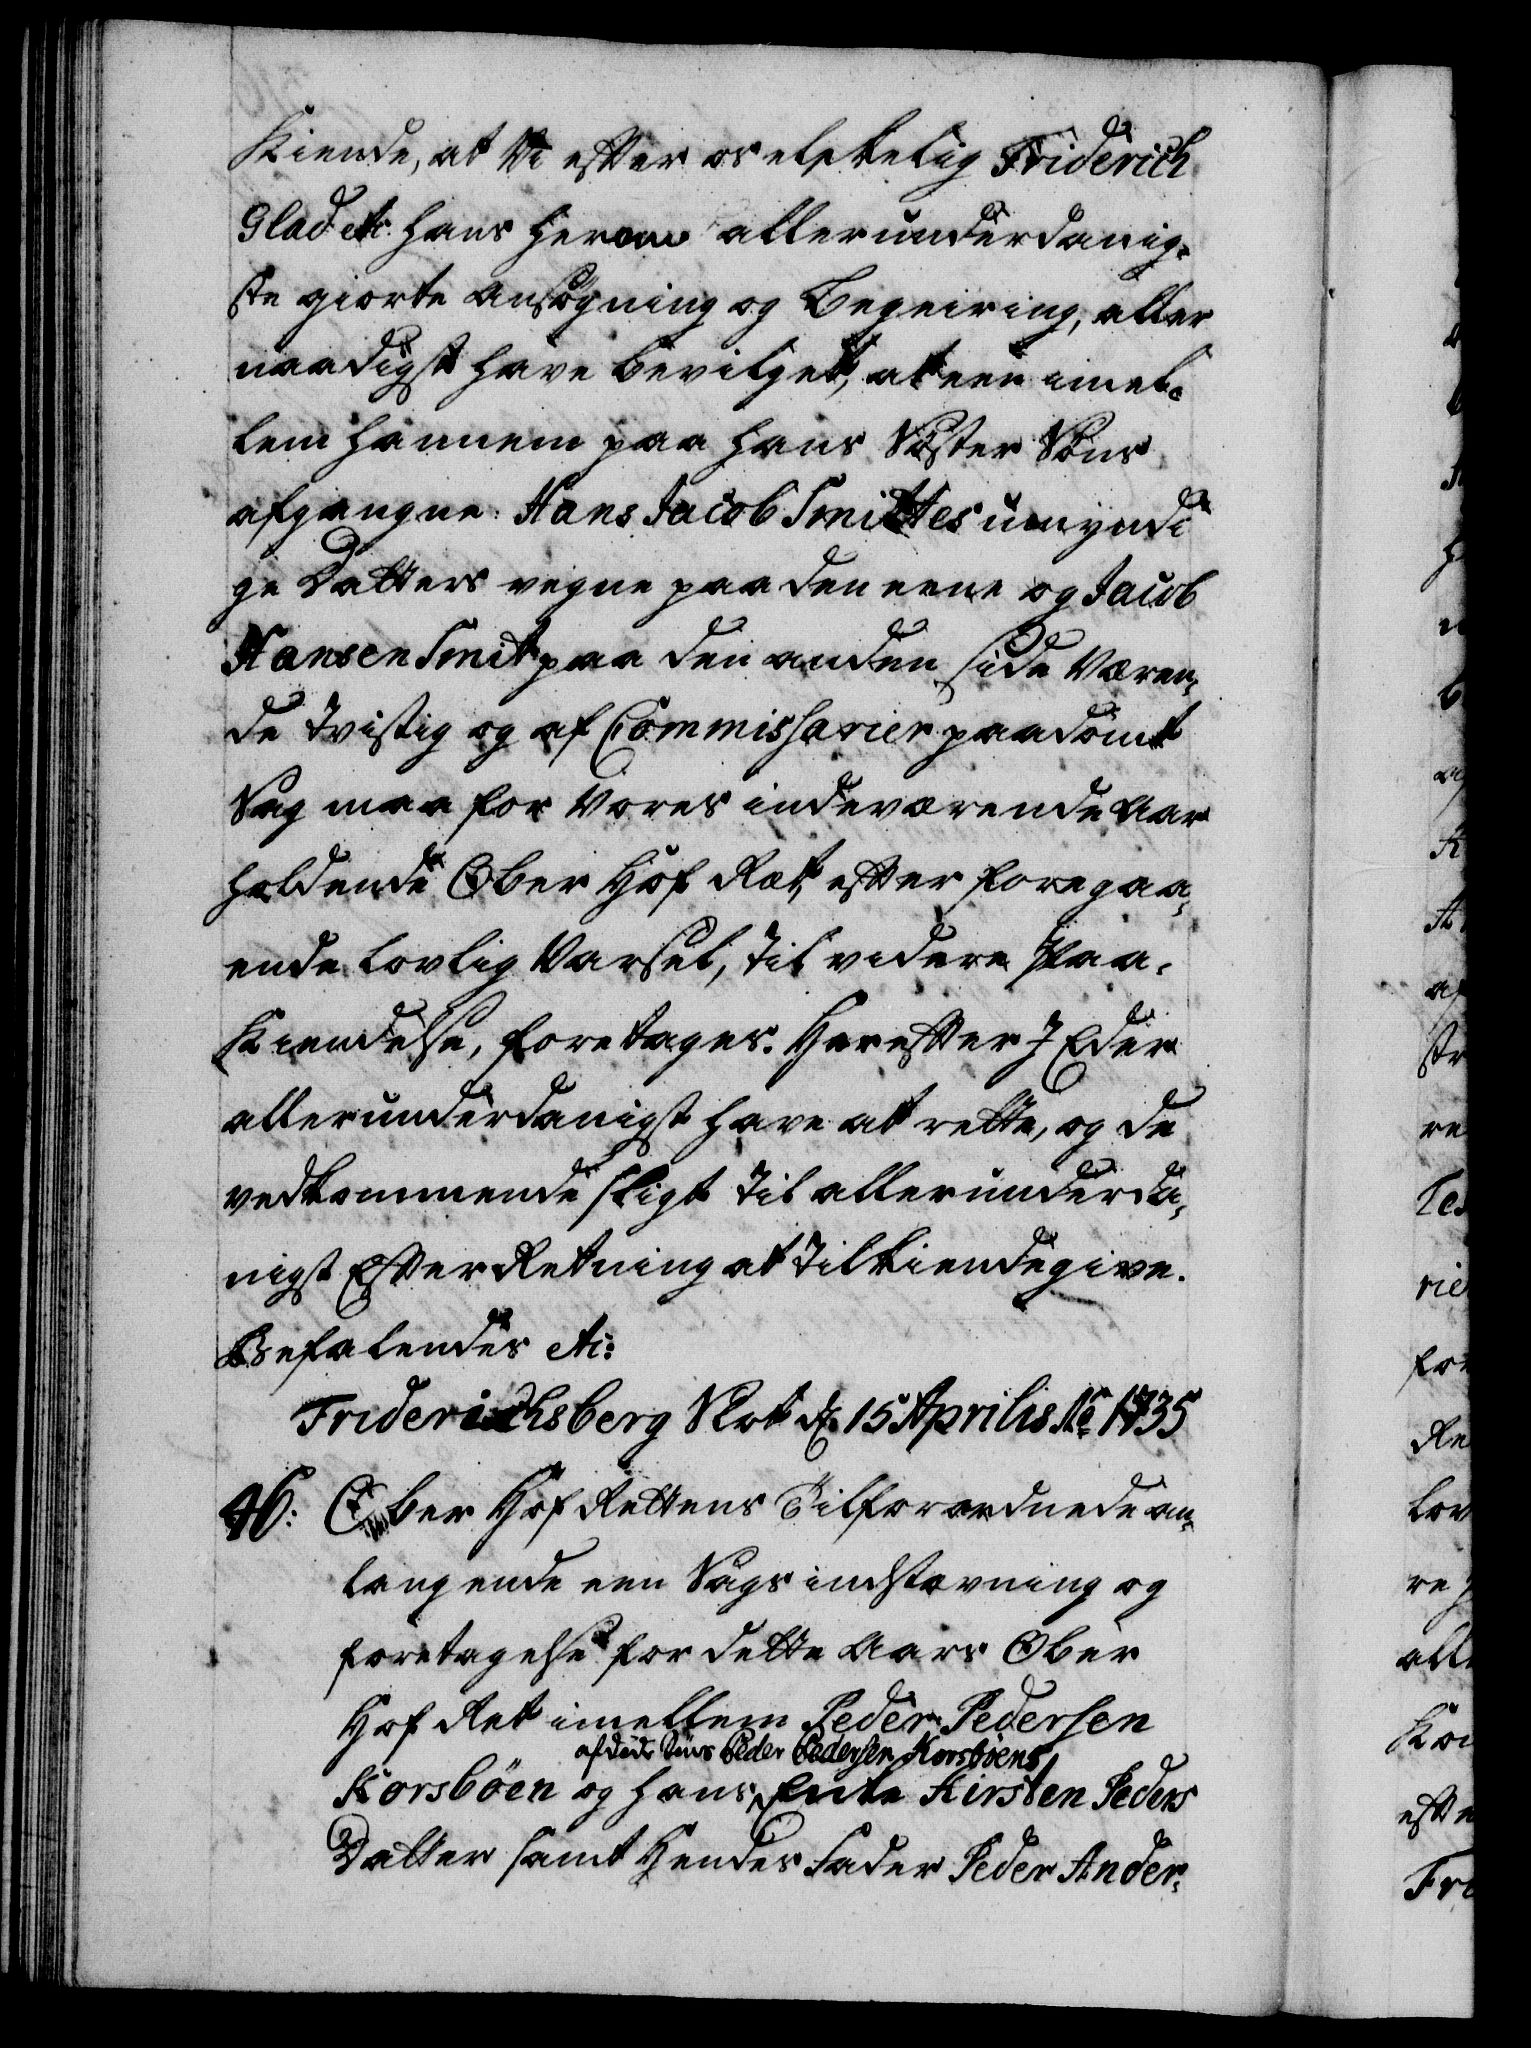 Kiende, at Vi efter os elskelig Friderich
Glad etc. hans herom allerunderdanig-
ste giorte Ansögning og Begeiring, aller
naadigst have bevilget, at een imel-
lem hannem paa hans Söster Söns
afgangne Hans Jacob Smittes umyndi
ge Datters vegne paa den eene og Jacob
Hansen Smit paa den anden side Væren-
de tvistig og af Commissarier paadömt
Sag maa for Vores indeværende Aar
holdende Ober Hof Ret, efter foregaa-
ende lovlig Varsel, til videre Paa-
Kiendelse, foretages. Herefter I Eder
allerunderdanigst have at rette, og de
vedkommende sligt til allerunderda-
nigst Efterretning at tilkiendegive.
Befalendes etc:
Friderichsberg Slot d. 15 Aprilis Ao 1735
46: Ober Hof Rettens Tilforordnede an-
langende een Sags indstevning og
foretagelse for dette Aars Ober
Hof Ret imellem Peder Pedersen
afdöde Söns Peder Pedersen Korsböens
Korsböen og hans Enke Kirsten Peders
Datter samt Hendes Fader Peder Ander-